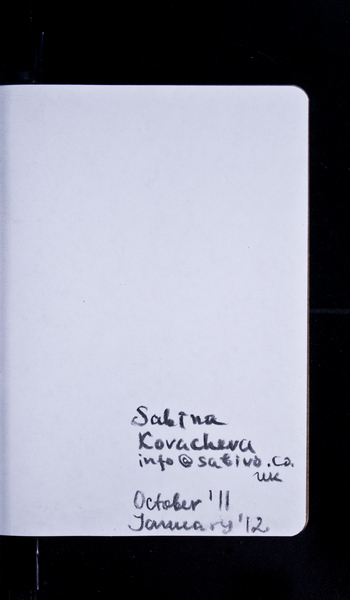 Sabina
Kovacheva
info@sativo.co.
uk
October '11
January '12